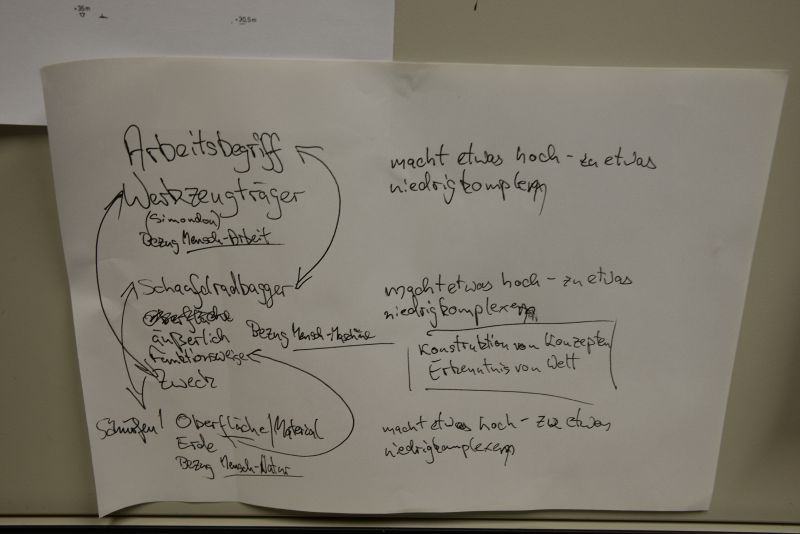 +36m
17
+30,5m
Arbeitsbegriff
Werkzeugträger
(Simondon)
Bezug Mensch-Arbeit
macht etwas hoch - zu etwas
niedrigkomplexem
Schaufelradbagger
Oberfläche
äußerlich
Funktionsweise
Zweck
Bezug Mensch-Maschine
macht etwas hoch - zu etwas
niedrigkomplexem
Konstruktion von Konzepten
Erkenntnis von Welt
Schürfen!
Oberfläche/Material
Erde
Bezug Mensch-Natur
macht etwas hoch - zu etwas
niedrigkomplexem